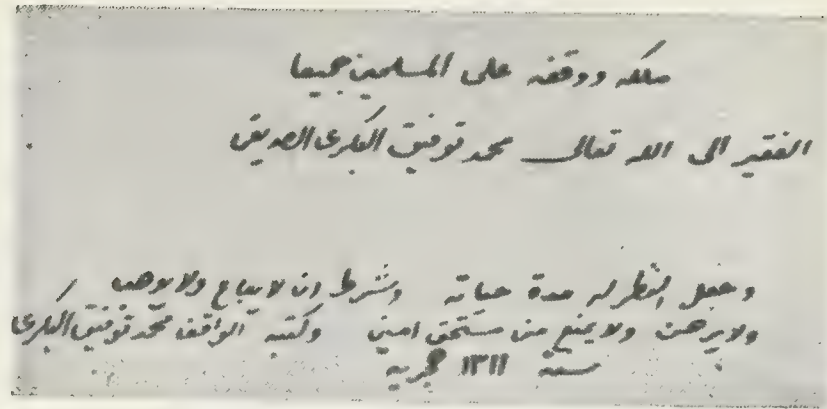 ملكه ووقفه على المسلمين جميعا
الفقير الى الله تعالى محمد توفيق البكرى الصديقى
وجعل النظر له مدة حياته وشرط ان لا يباع ولا يوهب
ولا يرهن ولا يمنع من مستحق امين وكتبه الواقف محمد توفيق البكرى
سنة ١٣١١ هجرية